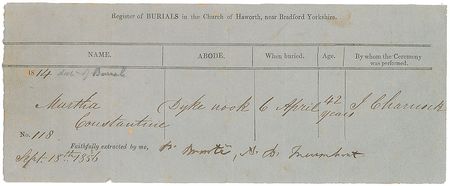 Register of BURIALS in the Church of Haworth, near Bradford Yorkshire.
NAME. ABODE. When buried. Age. By whom the Ceremony was performed.
1814 date of Burial
Martha Constantine Dyke nook 6 April 42 years J Charnock
No. 118
Faithfully extracted by me, P. Brontë, A. B. Incumbent
Sept. 18th 1856